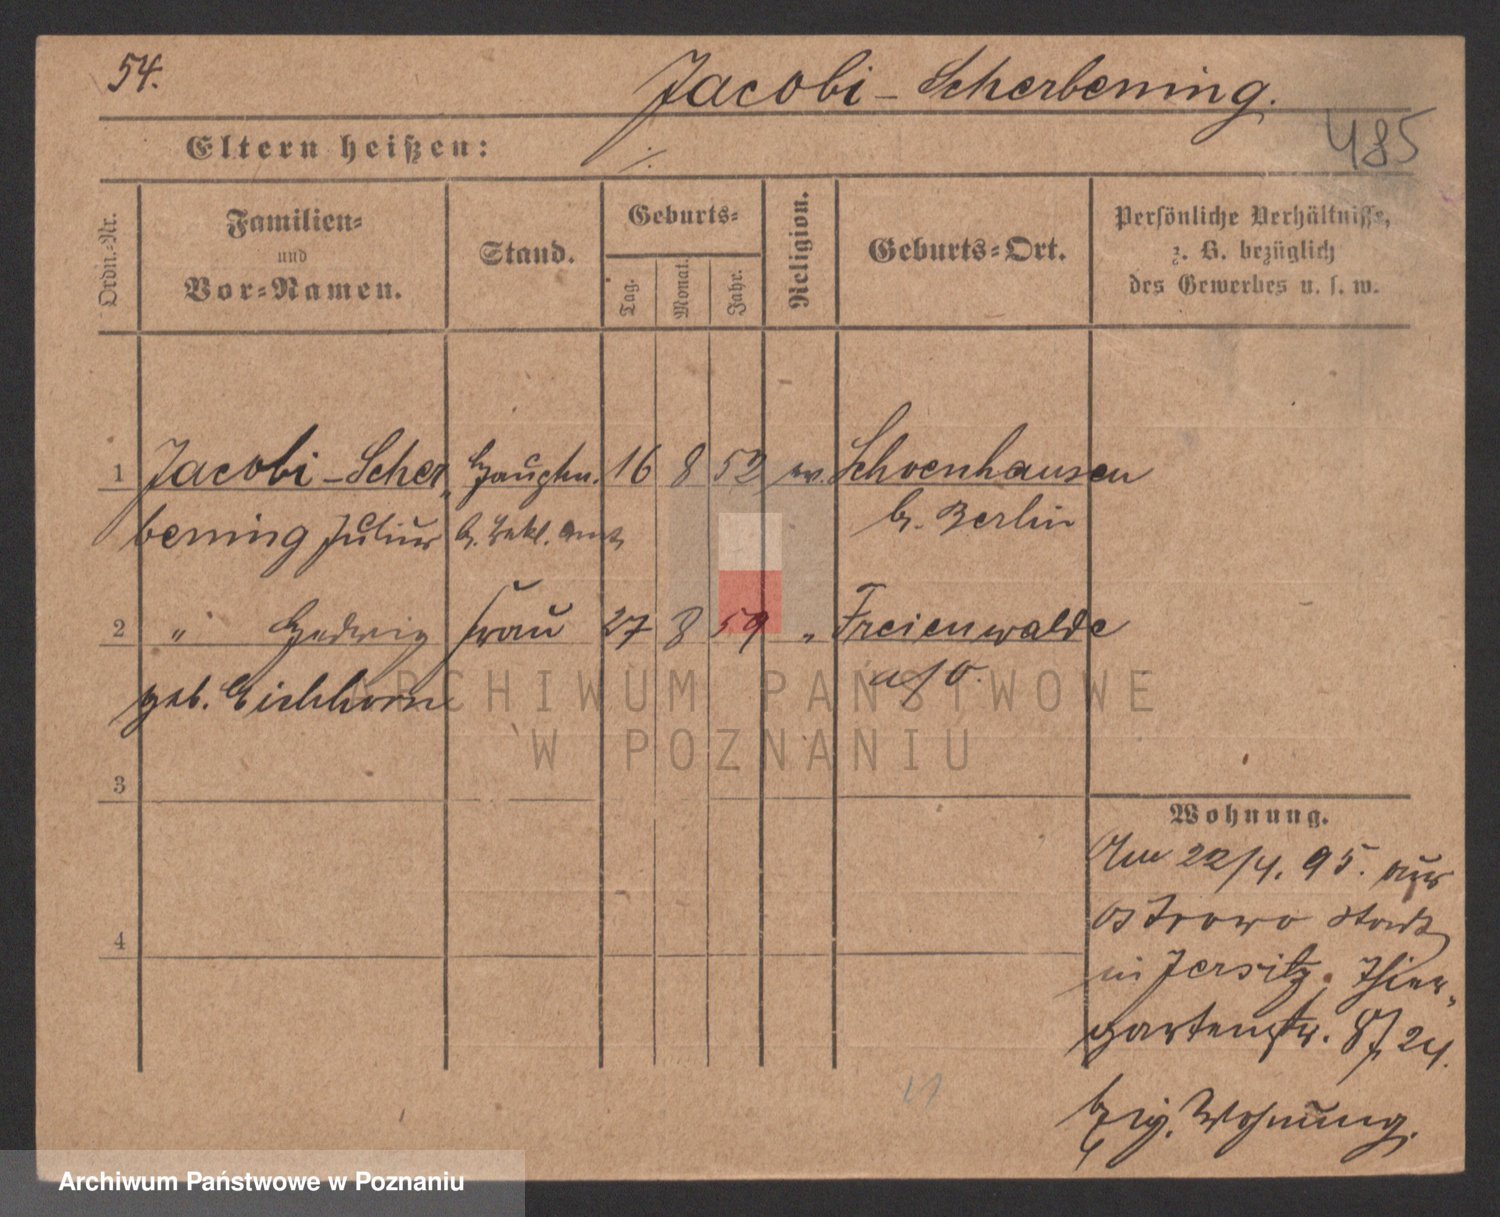 54.
Jacobi-Scherbening.
485
Eltern heißen: ./.
Ordn.-Nr.
Familien-
und
Vor-Namen.
Stand.
Geburts-
Tag.
Monat.
Jahr.
Religion.
Geburts-Ort.
Persönliche Verhältnisse,
z. B. bezüglich
des Gewerbes u. s. w.
1 Jacobi-Scher- Hauptm. 16 8 52 ev. Schoenhausen
bening Julius b. Bekl. Amt b. Berlin
2 " Hedwig Frau 27 8 59 " Freienwalde
geb. Eichhorn a/O.
3
4
Wohnung.
Am 22/4. 95. aus
Ostrowo Stadt
in Jersitz. Thier-
gartenstr. 8, 24.
Eig. Wohnung.
17
ARCHIWUM PAŃSTWOWE
W POZNANIU
Archiwum Państwowe w Poznaniu